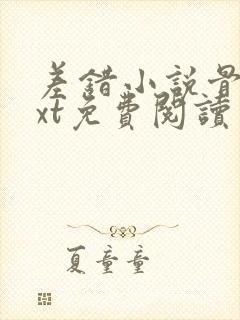 差錯小説骨
xt免費閱讀
夏童童